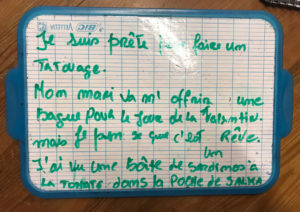 BIC VELLEDA
Je suis prête pour faire un
TATOUAGE.
Mon mari va m'offrir une
bague pour le jour de la Valentin.
mais je que c'est un Rêve.
J'ai vu une boîte de sardines à
LA TOMATE dans la POCHE de SALMA